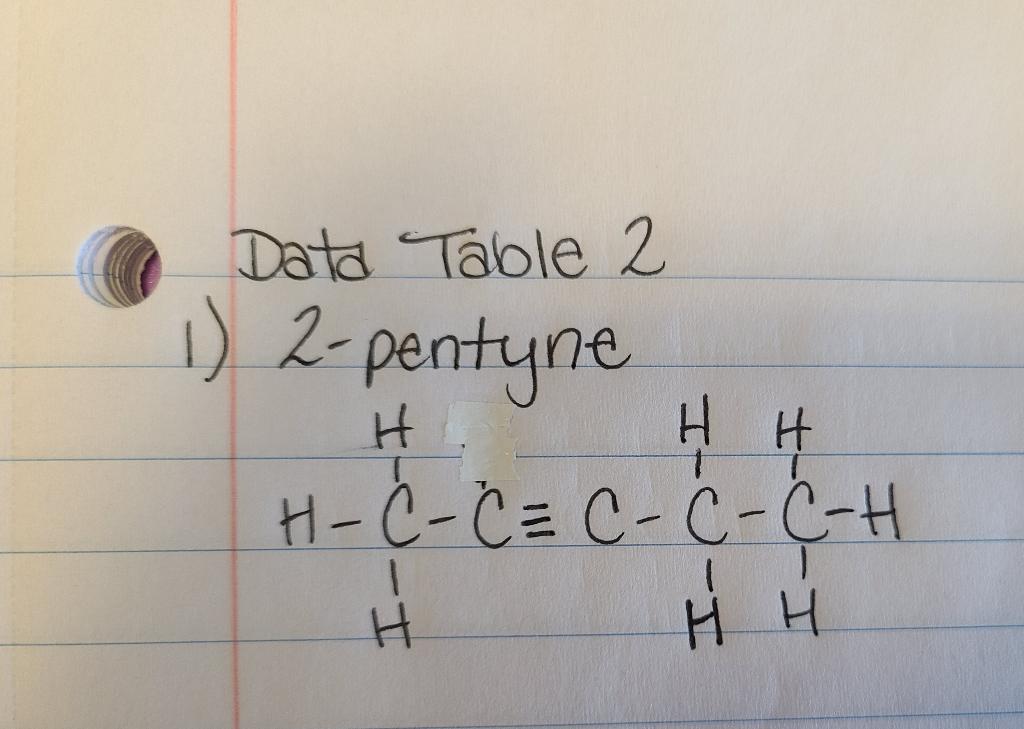 Data Table 2
1) 2-pentyne
H H H
H-C-C≡C-C-C-H
H H H